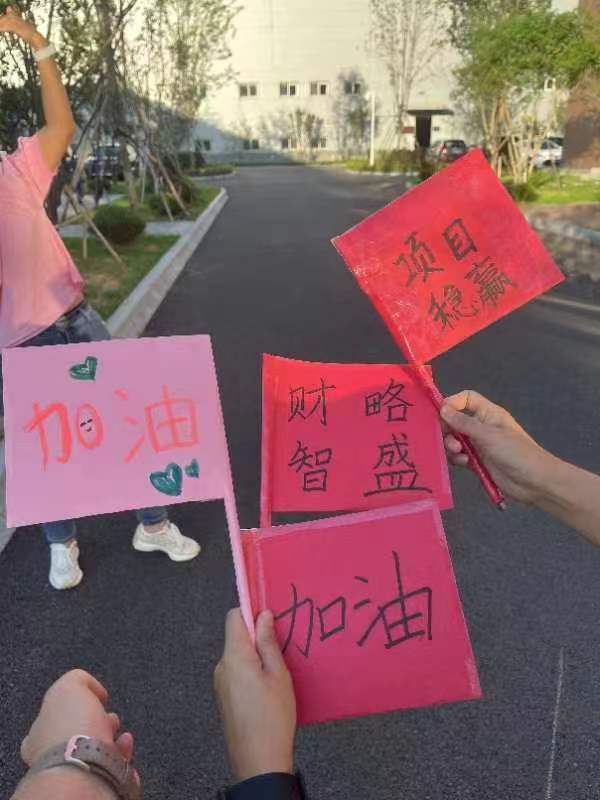 项目
稳赢
加油
财略
智盛
加油